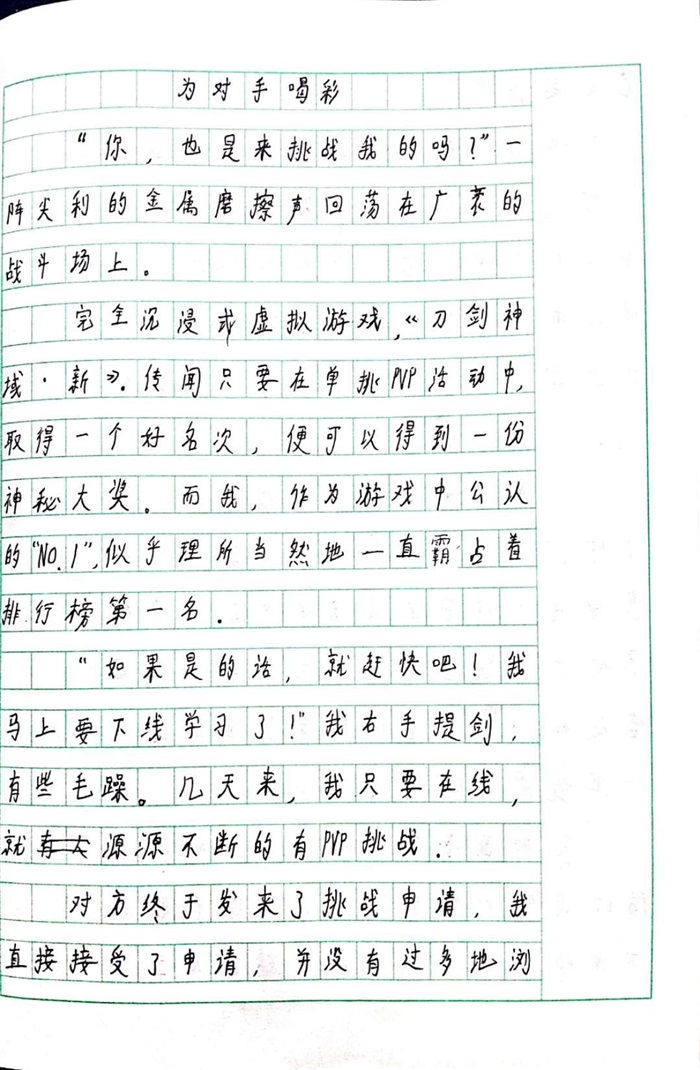 为对手喝彩
“你，也是来挑战我的吗？”一
阵尖利的金属磨擦声回荡在广袤的
战斗场上。
完全沉浸式虚拟游戏，《刀剑神
域·新》。传闻只要在单挑PVP活动中，
取得一个好名次，便可以得到一份
神秘大奖。而我，作为游戏中公认
的“NO.1”，似乎理所当然地一直霸占着
排行榜第一名.
“如果是的话，就赶快吧！我
马上要下线学习了！”我右手提剑，
有些毛躁。几天来，我只要在线，
就源源不断的有PVP挑战.
对方终于发来了挑战申请，我
直接接受了申请，并没有过多地浏